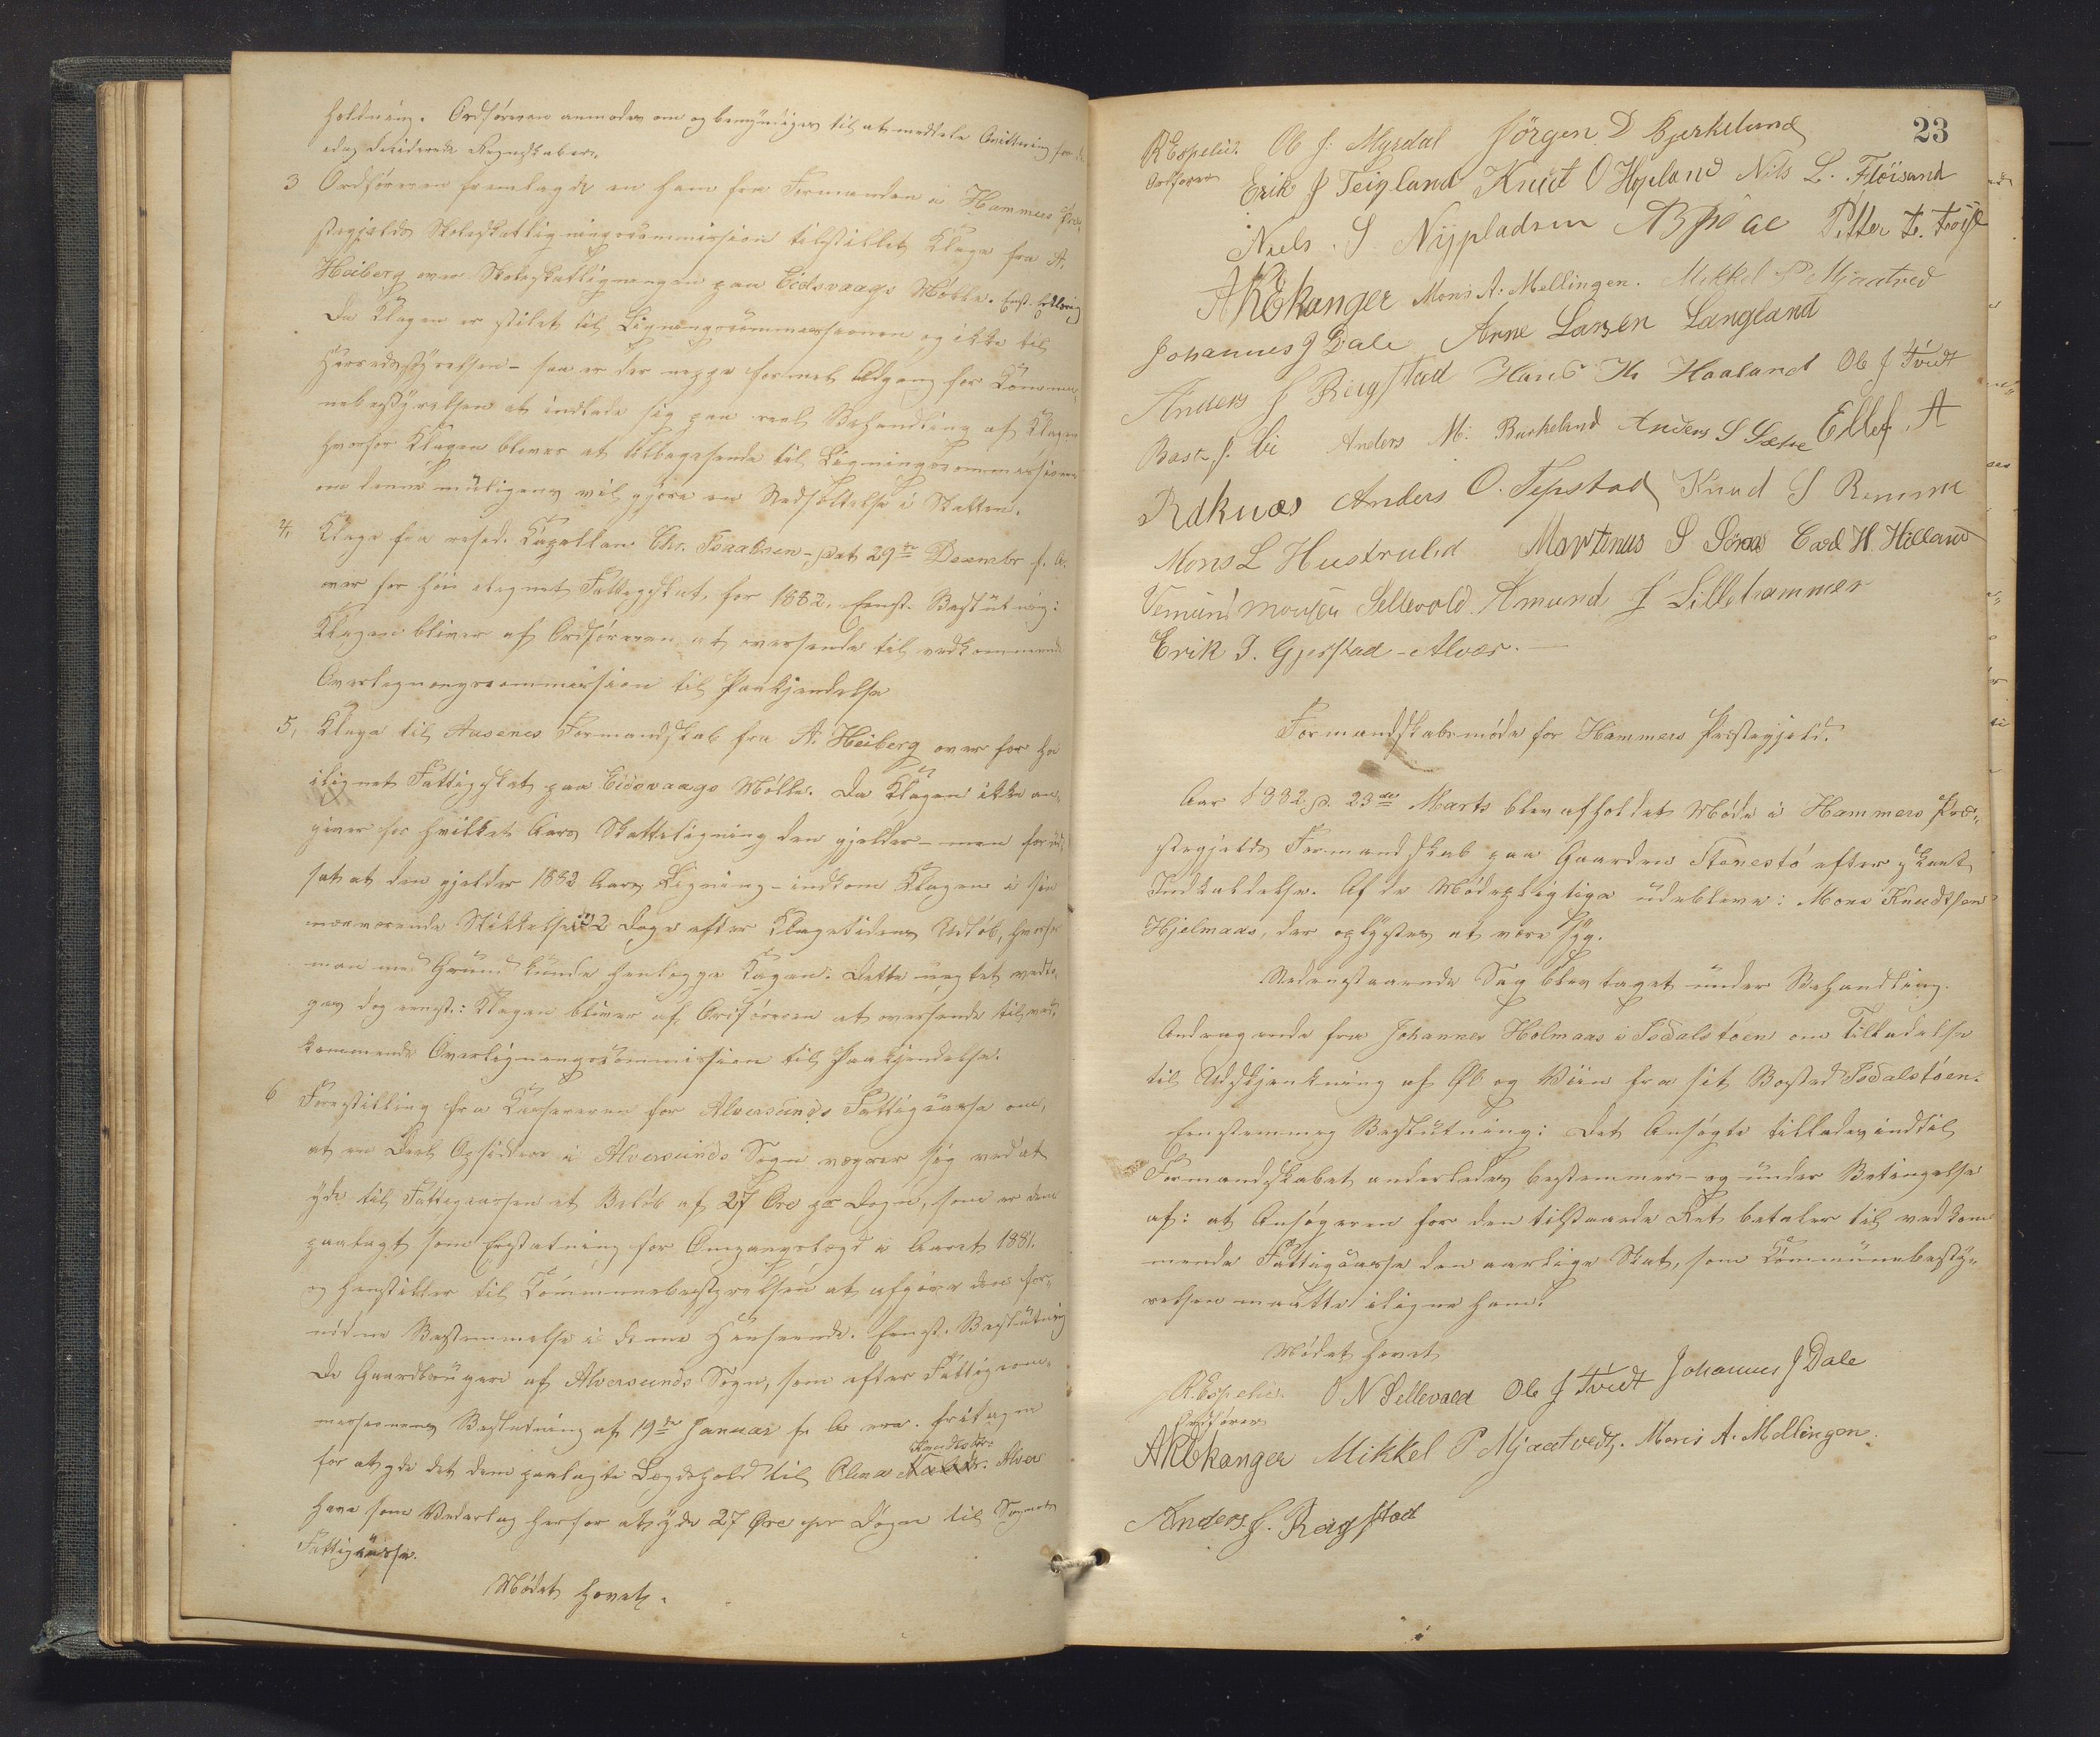 holdning. Ordføreren anmodes om og bemyndiges til at meddele Qvittering for de
idag deciderede Regnskaber.
3 Ordføreren fremlagde en ham fra Formanden i Hammers Præ-
stegjelds Skoleskatligningscommission tilstillet Klage fra A.
Heiberg over Skoleskatligningen paa Eidsvaags Mølle. Enst.
Da Klagen er stilet til Ligningscommissionen og ikke til
Herredsstyrelsen – saa er der neppe formel Adgang for Kommu-
nebestyrelsen at indlade sig paa reel Behandling af Klagen
hvorfor Klagen bliver at tilbagesende til Ligningscommissionen
om denne muligens vil gjøre en Nedsættelse i Skatten.
4, Klage fra resid. Kapellan Chr. Isaaksen – dat 29de Decembr f. A.
over for høit ilignet Fattigskat for 1882. Eenst. Beslutning:
Klagen bliver af Ordføreren at oversende til vedkommende
Overligningscommission til Paakjendelse
5, Klage til Aasenes Formandskab fra A. Heiberg over for høi
ilignet Fattigskat paa Eidsvaags Mølle. Da Klagen ikke an-
giver for hvilket Aars Skatteligning den gjelder – men forud-
sat at den gjelder 1882 Aars Ligning – indkom Klagen i sin
nærværende Skikkelse 2 Dage efter Klagetidens Udløb, hvorfor
man med Grund kunde henlægge Klagen. Dette uagtet vedto-
ges dog eenst.: Klagen bliver af Ordføreren at oversende til ved-
kommende Overligningscommission til Paakjendelse.
6 Forestilling fra Kassereren for Alversunds Fattigcasse om,
at en Deel Opsiddere i Alversunds Sogn vægrer sig ved at
yde til Fattigcassen et Beløb af 27 Øre pr Døgn, som er dem
paalagt som Erstatning for Omgangslægd i Aaret 1881.
og henstiller til Kommunebestyrelsen at afgive den for-
nødne Bestemmelse i denne Henseende. Eenst. Beslutning
De Gaardbrugere af Alversunds Sogn, som efter Fattigcom-
missionens Beslutning af 19de Januar f. A. ere fritagne
for at yde det dem paalagte Lægdshold til Olina Knudsdtr. Alver
have som Vederlag herfor at yde 27 Øre pr Døgn til Sognets
Fattigkasse.
Mødet hævet.
23
R Espelid. Ole J. Myrdal Jörgen D Bjerkelund
Ordfører Erik J Teigland Knut O Hopland Nils L. Fløisand
Niels. S. Nypladsen Petter
A K Ekanger Mons A. Mellingen. Mikkel P Mjaatved
Johannes J Dale Arne Larsen Langeland
Anders J Reigstad Hans K Haaland Ole J Tveit
Anders M. Burkeland Anders S Sætre Ellef A
Rdknæs Anders O. Tepstad Knud S Remme
Mons L Hustrulid Martinus S Soraas Carl H. Hilland
Vemund Monsen Sellevold. Amund J Lillehammer
Erik I. Gjerstad – Alvær.
Formandskabsmøde for Hammers Præstegjeld.
Aar 1882 d. 23de Marts blev afholdet Møde i Hammers Præ-
stegjelds Formandskab paa Gaarden Stenestø efter skeet
Indkaldelse. Af de Mødepligtige udeblev: Mons Knudtsen
Hjelmaas, der oplystes at være syg.
Nedenstaaende Sag blev taget under Behandling.
Andragende fra Johannes Holmaas i Isdalstøen om Tilladelse
til Udskjenkning af Øl og Viin fra sit Bosted Isdalstøen.
Eenstemmig Beslutning: Det Ansøgte tillades indtil
Formandskabet anderledes bestemmer – og under Betingelse
af: at Ansøgeren for den tilstaaede Ret betaler til vedkom
mende Fattigcasse den aarlige Skat, som Kommunebesty-
relsen maatte iligne ham.
Mødet hævet
R. Espelid. O N Sellevold Ole J Tveit Johannes J Dale
Ordfører
A K Ekanger Mikkel P Mjaatvedt. Mons A. Mellingen.
Anders J. Reigstad